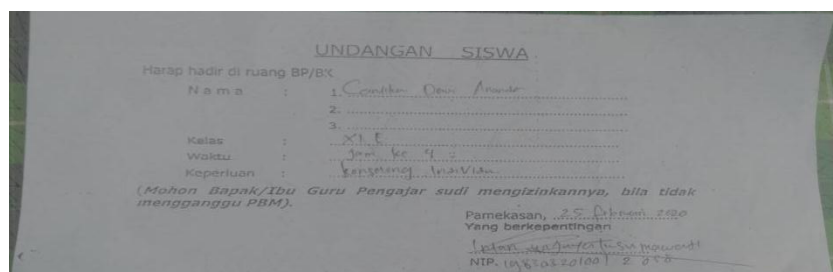 UNDANGAN SISWA
Harap hadir di ruang BP/BK
Nama : 1. Dewi
2.
3.
Kelas : XI.E
Waktu : Jam ke 4
Keperluan : Konseling Individu
(Mohon Bapak/Ibu Guru Pengajar sudi mengizinkannya, bila tidak
mengganggu PBM).
Pamekasan, 25 2020
Yang berkepentingan
Intan
NIP.